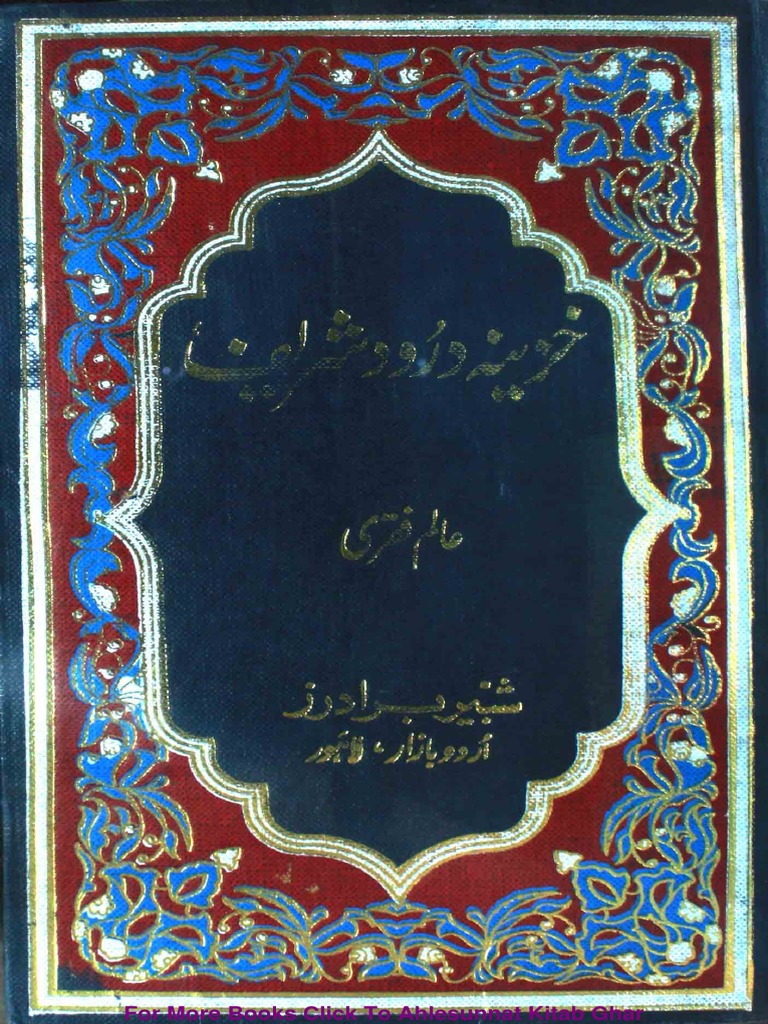 خزینہ درُود شریف
عالم فقری
شبیر برادرز
اُردو بازار، لاہور
For More Books Click To Ahlesunnat Kitab Ghar